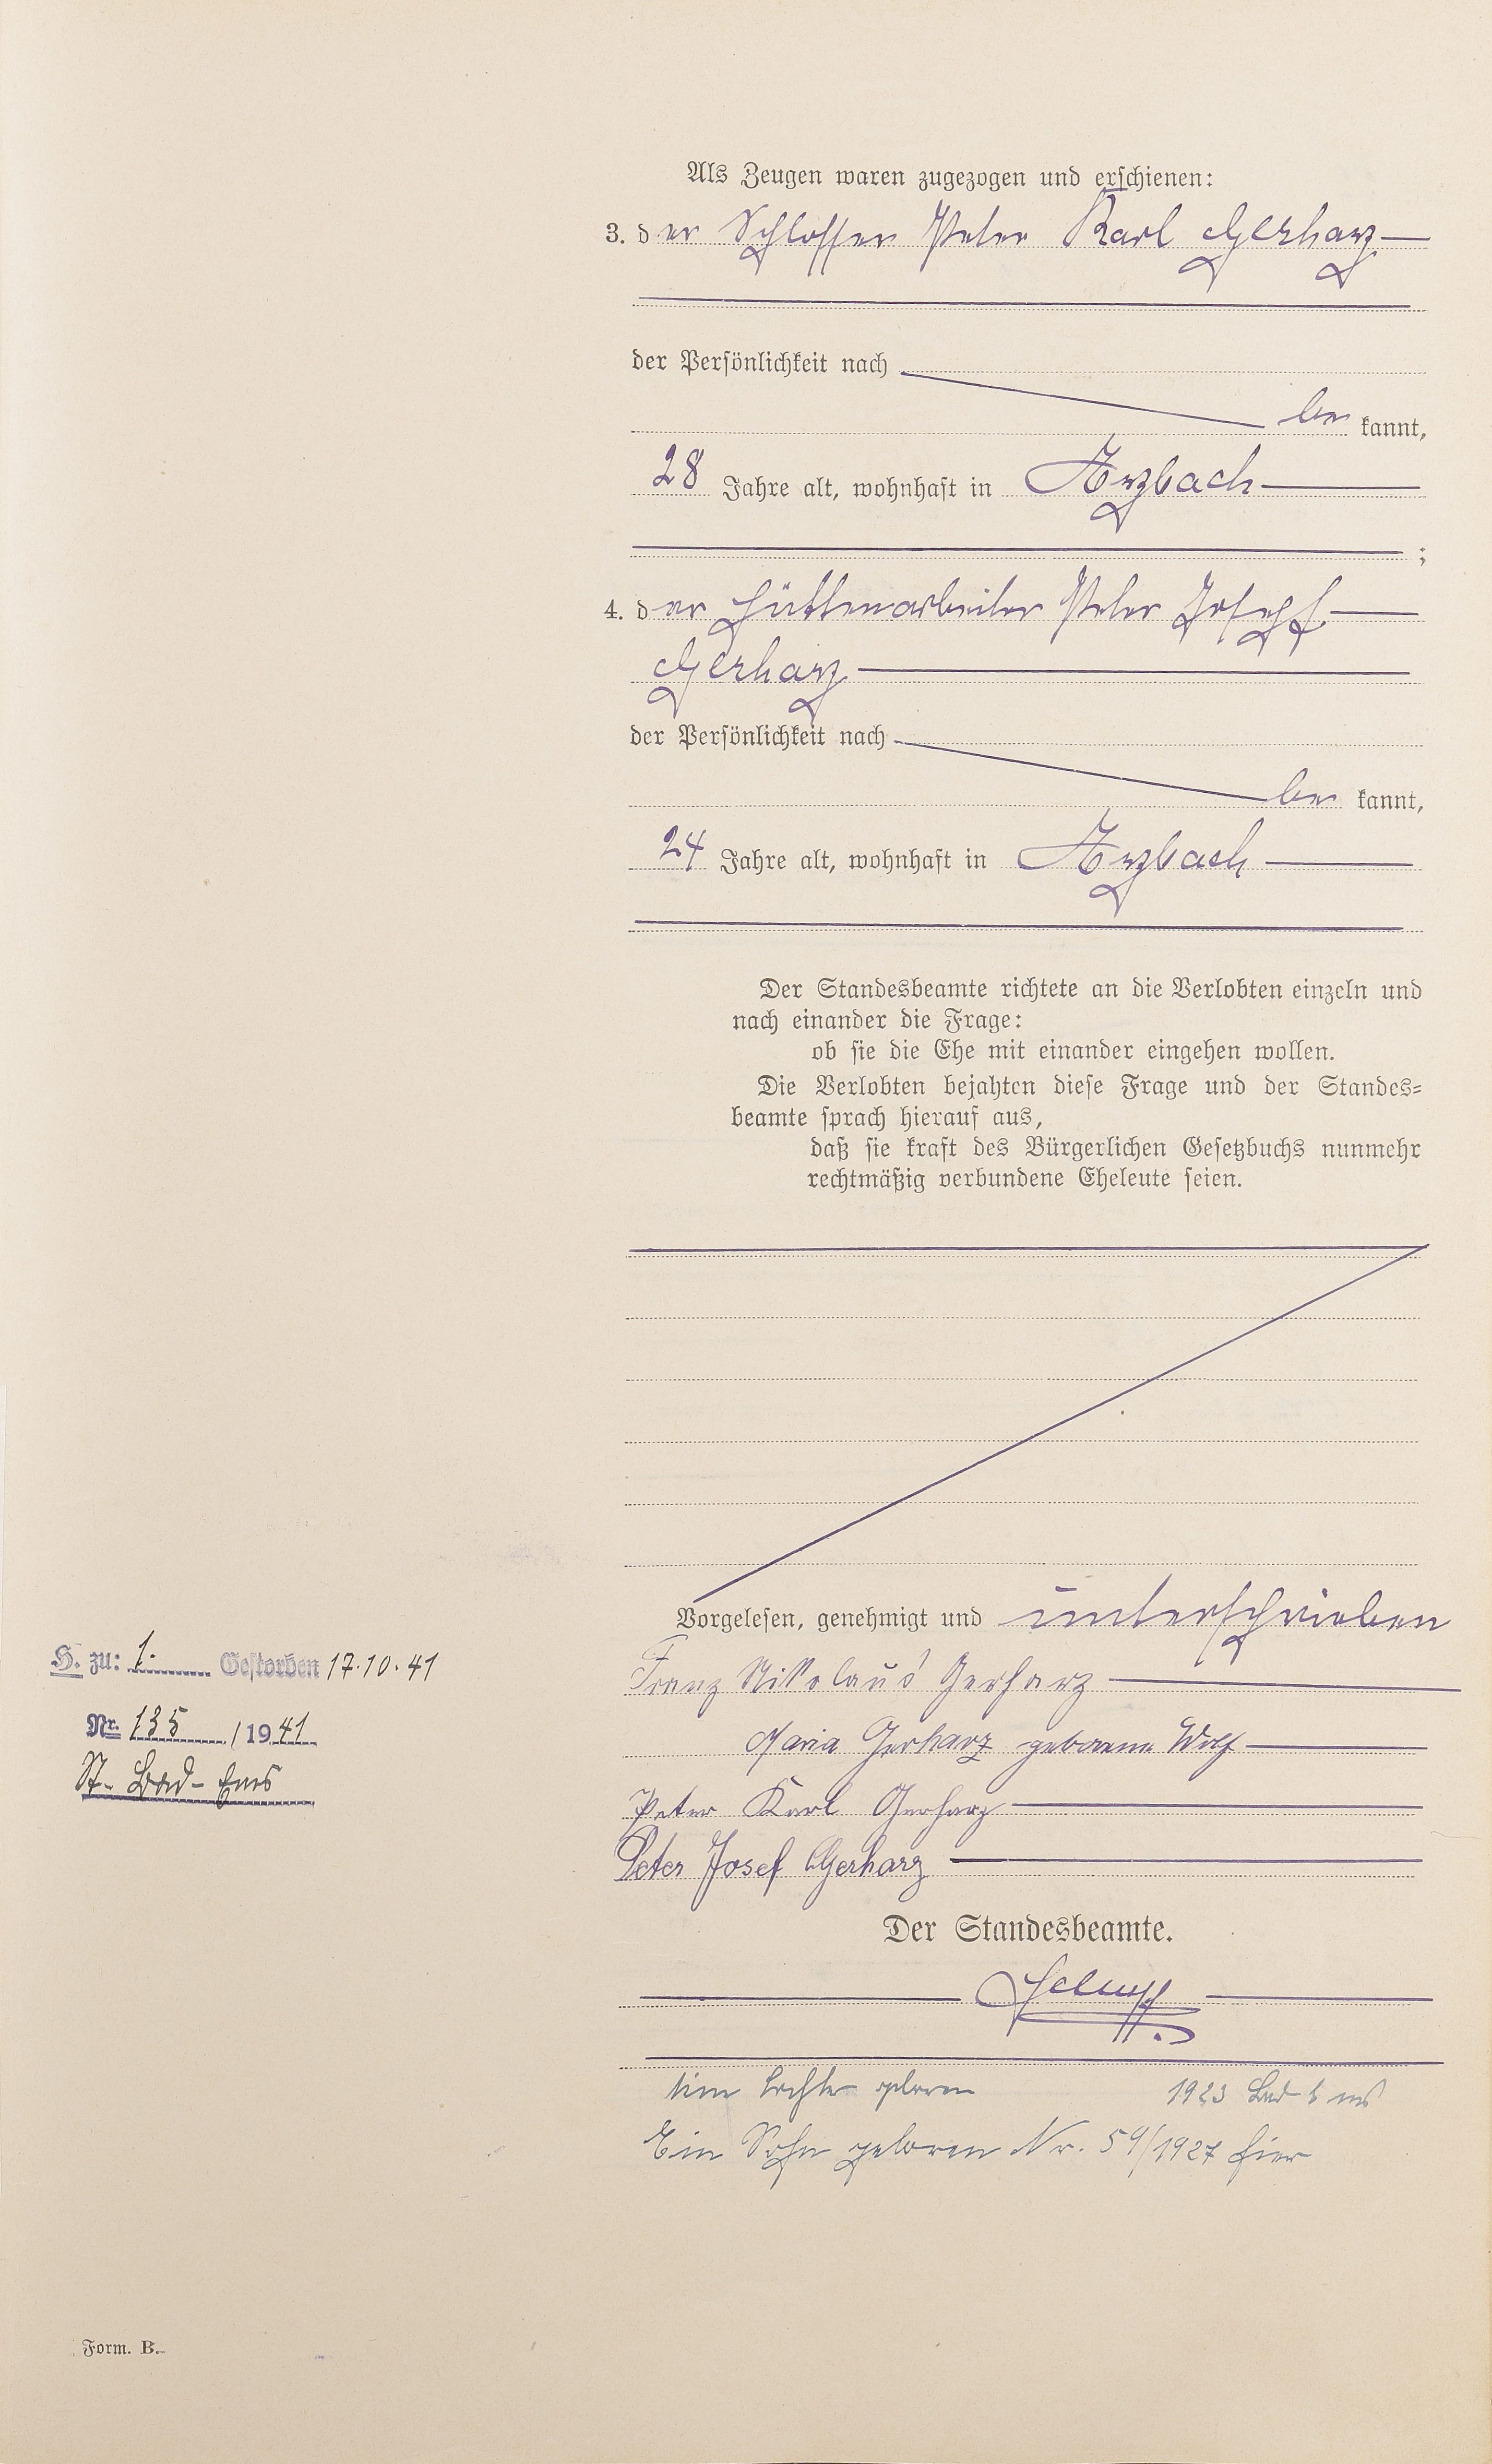 Als Zeugen waren zugezogen und erschienen:
3. der Schlosser Peter Karl Gerharz
der Persönlichkeit nach
be kannt,
28 Jahre alt, wohnhaft in Arzbach
;
4. der Hüttenarbeiter Peter Josef
Gerharz
der Persönlichkeit nach
be kannt,
24 Jahre alt, wohnhaft in Arzbach
Der Standesbeamte richtete an die Verlobten einzeln und
nach einander die Frage:
ob sie die Ehe mit einander eingehen wollen.
Die Verlobten bejahten diese Frage und der Standes-
beamte sprach hierauf aus,
daß sie kraft des Bürgerlichen Gesetzbuchs nunmehr
rechtmäßig verbundene Eheleute seien.
Vorgelesen, genehmigt und unterschrieben
Franz Nikolaus Gerharz
Maria Gerharz geborene Wolf
Peter Karl Gerharz
Peter Josef Gerharz
Der Standesbeamte.
Eine Tochter geboren 1923 Bad Ems
Ein Sohn geboren Nr. 59/1927 hier
H. zu: 1. Gestorben 17.10.41
Nr. 135 / 1941
St. Bad-Ems
Form. B.